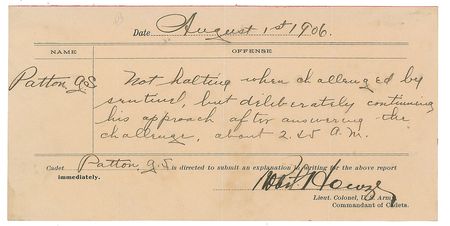 Date August 1st 1906.
NAME OFFENSE
Patton, G.S. Not halting when challenged by
sentinel, but deliberately continuing
his approach after answering the
challenge, about 2.45 A.M.
Cadet Patton, G.S. is directed to submit an explanation in writing for the above report
immediately.
Robt L Howze
Lieut. Colonel, U.S. Army
Commandant of Cadets.